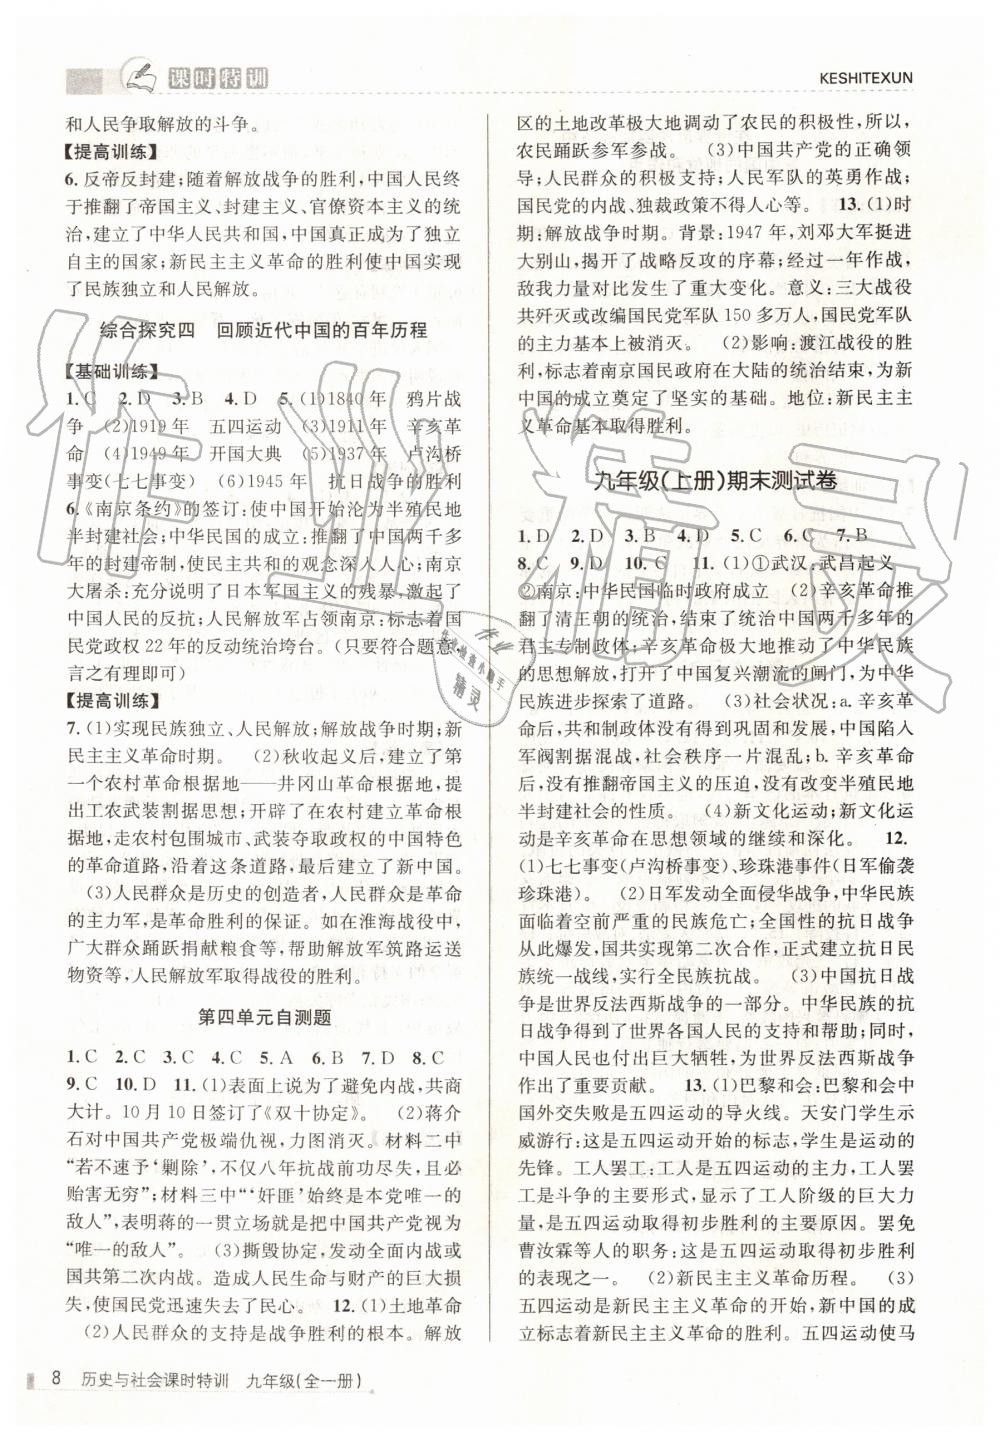 课时特训
KESHITEXUN
和人民争取解放的斗争。
【提高训练】
6. 反帝反封建;随着解放战争的胜利,中国人民终
于推翻了帝国主义、封建主义、官僚资本主义的统
治,建立了中华人民共和国,中国真正成为了独立
自主的国家;新民主主义革命的胜利使中国实现
了民族独立和人民解放。
综合探究四 回顾近代中国的百年历程
【基础训练】
1. C 2. D 3. B 4. D 5. (1)1840年 鸦片战
争 (2)1919年 五四运动 (3)1911年 辛亥革
命 (4)1949年 开国大典 (5)1937年 卢沟桥
事变(七七事变) (6)1945年 抗日战争的胜利
6.《南京条约》的签订:使中国开始沦为半殖民地
半封建社会;中华民国成立:推翻了中国两千多年
的封建帝制,使民主共和的观念深入人心;南京
大屠杀:充分说明了日本军国主义的残暴,激起了
中国人民的反抗;人民解放军占领南京:标志着国
民党政权 22 年的反动统治垮台。(只要符合题意,
言之有理即可)
【提高训练】
7. (1)实现民族独立、人民解放;解放战争时期;新
民主主义革命时期。 (2)秋收起义后,建立了第
一个农村革命根据地——井冈山革命根据地,提
出工农武装割据思想;开辟了在农村建立革命根
据地,走农村包围城市、武装夺取政权的中国特色
的革命道路,沿着这条道路,最终解放了新中国。
(3)人民群众是历史的创造者,人民群众是革命
的主力军,是革命胜利的保证。如在淮海战役中,
广大群众踊跃捐献粮食等,帮助解放军筑路运送
物资等,人民解放军取得战役的胜利。
第四单元自测题
1. C 2. C 3. C 4. C 5. A 6. B 7. D 8. C
9. C 10. D 11. (1)表面上说是为了避免内战,共商
大计。10月10日签订了《双十协定》。 (2)蒋介
石对中国共产党极端仇视,力图消灭。材料二中
“若不速予‘剿除’,不仅八年抗战前功尽失,且必
贻害无穷”;材料三中“‘奸匪’始终是本党唯一的
敌人”,表明蒋的一贯立场就是把中国共产党视为
“唯一的敌人”。 (3)撕毁协定,发动全面内战或
国共第二次内战。造成人民生命与财产的巨大损
失,使国民党迅速失去了民心。 12. (1)土地革命
(2)人民群众的支持是战争胜利的根本。解放
区的土地改革极大地调动了农民的积极性,所以,
农民踊跃参军参战。 (3)中国共产党的正确领
导;人民群众的积极支持;人民军队的英勇作战;
国民党的内战、独裁政策不得人心等。 13. (1)时
期:解放战争时期。背景:1947年,刘邓大军挺进
大别山,揭开了战略反攻的序幕;经过一年作战,
敌我力量对比发生了重大变化。意义:三大战役
共歼灭或改编国民党军队 150 多万人,国民党军队
的主力基本上被消灭。 (2)影响:渡江战役的胜
利,标志着南京国民政府在大陆的统治结束,为新
中国的成立奠定了坚实的基础。地位:新民主主
义革命基本取得胜利。
九年级(上册)期末测试卷
1. D 2. D 3. B 4. D 5. C 6. C 7. B
8. C 9. D 10. C 11. (1)①武汉:武昌起义
②南京:中华民国临时政府成立 (2)辛亥革命推
翻了清王朝的统治,结束了统治中国两千多年的
君主专制政体;辛亥革命极大地推动了中华民族
的思想解放,打开了中国复兴潮流的闸门,为中华
民族进步探索了道路。 (3)社会状况:a. 辛亥革
命后,共和制政体没有得到巩固和发展,中国陷入
军阀割据混战,社会秩序一片混乱;b. 辛亥革命
后,没有推翻帝国主义的压迫,没有改变半殖民地
半封建社会的性质。 (4)新文化运动;新文化运
动是辛亥革命在思想领域的继续和深化。 12.
(1)七七事变(卢沟桥事变)、珍珠港事件(日军偷袭
珍珠港)。 (2)日军发动全面侵华战争,中华民族
面临着空前严重的民族危亡;全国性的抗日战争
从此爆发,国共实现第二次合作,正式建立抗日民
族统一战线,实行全民族抗战。 (3)中国抗日战
争是世界反法西斯战争的一部分。中华民族的抗
日战争得到了世界各国人民的支持和帮助;同时,
中国人民也付出巨大牺牲,为世界反法西斯战争
作出了重要贡献。 13. (1)巴黎和会:巴黎和会中
国外交失败是五四运动的导火线。天安门学生示
威游行:这是五四运动开始的标志,学生是运动的
先锋。工人罢工:工人是五四运动的主力,工人罢
工是斗争的主要形式,这显示了工人阶级的巨大力
量,是五四运动取得初步胜利的主要原因。罢免
曹汝霖等人的职务:这是五四运动取得初步胜利
的表现之一。 (2)新民主主义革命历程。 (3)
五四运动是新民主主义革命的开始,新中国的成
立标志着新民主主义革命的胜利。五四运动使马
8 历史与社会课时特训 九年级(全一册)
作业精灵
作业
精灵